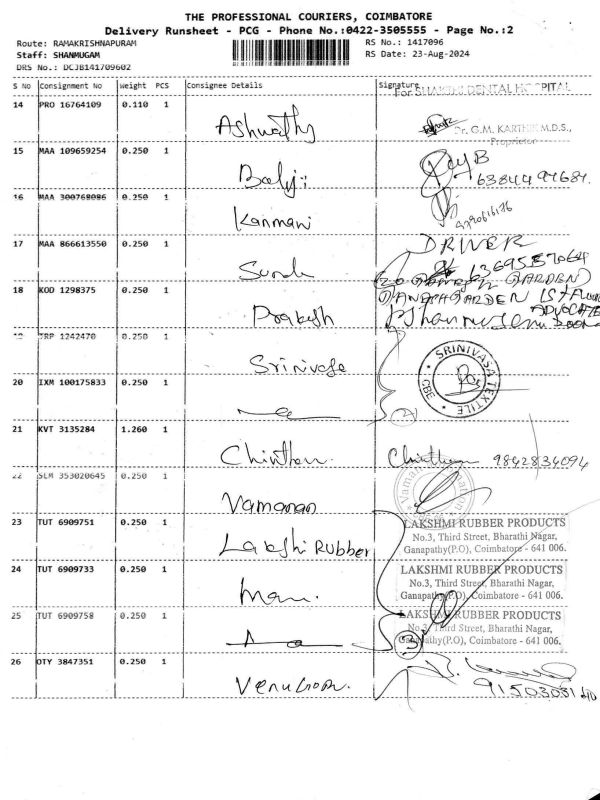 THE PROFESSIONAL COURIERS, COIMBATORE
Delivery Runsheet - PCG - Phone No.:0422-3505555 - Page No.:2
Route: RAMAKRISHNAPURAM RS No.: 1417096
Staff: SHANMUGAM RS Date: 23-Aug-2024
DRS No.: DCJB141709602
S No Consignment No Weight PCS Consignee Details Signature
For SHAKSHI DENTAL HOSPITAL
14 PRO 16764109 0.110 1 Ashwathy
Dr. G.M. KARTHIK M.D.S.,
Proprietor
15 MAA 109659254 0.250 1 Balaji
16 MAA 300768086 0.250 1 Kanmani
17 MAA 866613550 0.250 1
DRIVER
18 KOD 1298375 0.250 1 Prakash
GARDEN
ADVOCATE
19 TRP 1242470 0.250 1 Srinivasa
SRINIVASA TEXTILE
CBE
20 IXM 100175833 0.250 1
2
21 KVT 3135284 1.260 1 Chinthan. 9842834094
22 SLM 353020645 0.250 1 Vamanan
23 TUT 6909751 0.250 1 Lakshi Rubber
LAKSHMI RUBBER PRODUCTS
No.3, Third Street, Bharathi Nagar,
Ganapathy(P.O), Coimbatore - 641 006.
24 TUT 6909733 0.250 1
LAKSHMI RUBBER PRODUCTS
No.3, Third Street, Bharathi Nagar,
Ganapathy(P.O), Coimbatore - 641 006.
25 TUT 6909758 0.250 1
LAKSHMI RUBBER PRODUCTS
No.3, Third Street, Bharathi Nagar,
Ganapathy(P.O), Coimbatore - 641 006.
3
26 OTY 3847351 0.250 1